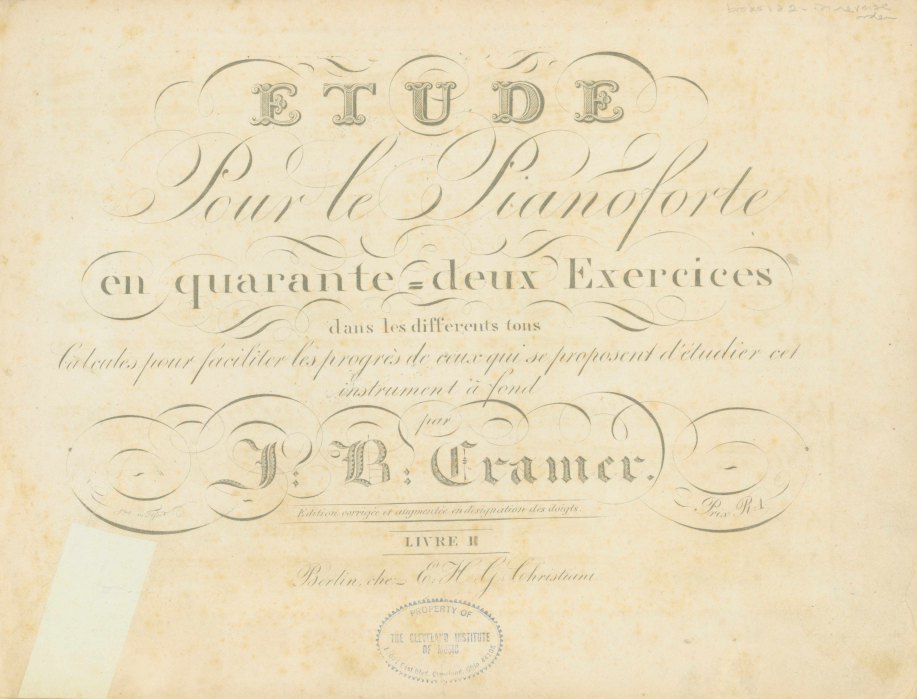 ETUDE
Pour le Pianoforte
en quarante=deux Exercices
dans les differents tons
Calcules pour faciliter les progrès de ceux qui se proposent d'étudier cet
instrument à fond
par
J: B: Cramer.
Edition corrigée et augmentée en designation des doigts.
Prix R
LIVRE II
Berlin, che E. H. G. Christiani
PROPERTY OF
THE CLEVELAND INSTITUTE
OF MUSIC
East Blvd. Cleveland, Ohio 44106